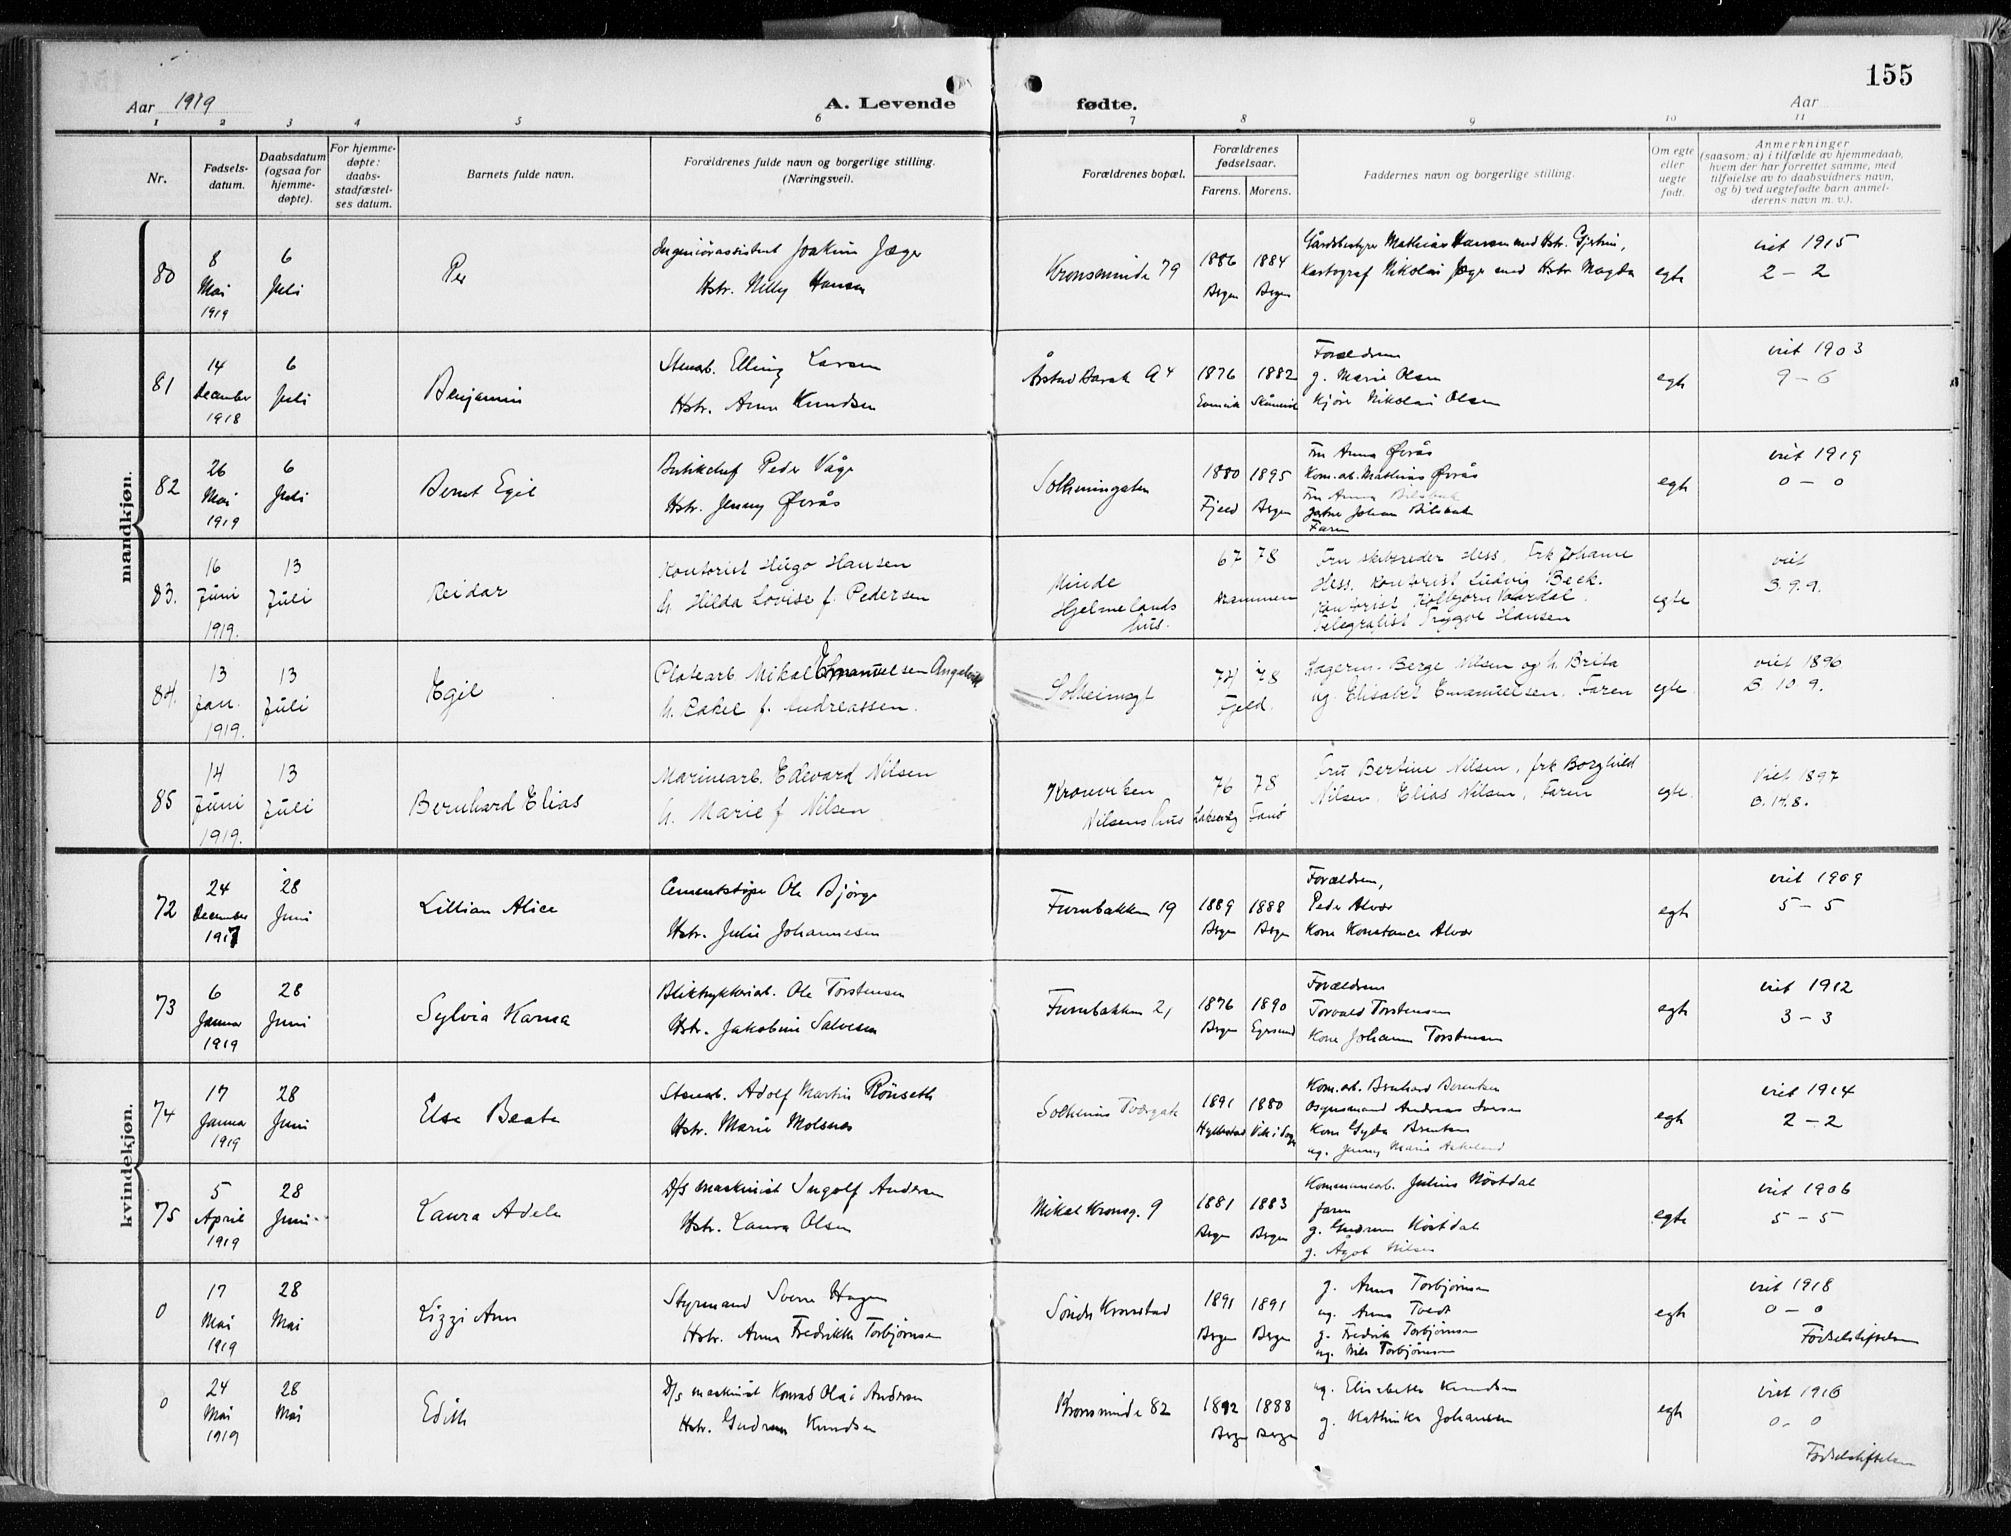 155
Aar 1919
A. Levende fødte.
Aar
1 2 3 4 5 6 7 8 9 10 11
Nr.
Fødsels-
datum.
Daabsdatum
(ogsaa for
hjemme-
døpte).
For hjemme-
døpte:
daabs-
stadfæstel-
ses datum.
Barnets fulde navn.
Forældrenes fulde navn og borgerlige stilling.
(Næringsvei).
Forældrenes bopæl.
Forældrenes
fødselsaar.
Farens. Morens.
Faddernes navn og borgerlige stilling.
Om egte
eller
uegte
født.
Anmerkninger
(saasom: a) i tilfælde av hjemmedaab,
hvem der har forrettet samme, med
tilføielse av to daabsvidners navn,
og b) ved uegtefødte barn anmel-
derens navn m. v.).
mandkjøn.
80
8
Mai
1919
6
Juli
Per
Ingeniørassistent Joakim Jæger
Hstr. Nilly Hansen
Kronsminde 79
1886 1884
Bergen Bergen
Gårdsbestyrer Mathias Hansen med Hstr. Gjertine,
Kartograf Nikolai Jæger med Hstr Magda
egte
viet 1915
2 - 2
81
14
December
1918
6
Juli
Benjamin
Stenarb. Elling Larsen
Hstr. Anna Knudsen
Årstad Barak A 4
1876 1882
Forældrene
g. Marie Olsen
Kjører Nikolai Olsen
egte
viet 1903
9 - 6
82
26
Mai
1919
6
Juli
Bernt Egil
Butikchef Peder Våge
Hstr. Jenny Øvrås
Solheimsgaten
1880 1895
Fjeld Bergen
Fru Anna Øvrås
Kom.arb. Mathias Øvrås
Fru Anna
Johan
Faren
egte
viet 1919
0 - 0
83.
16
Juni
1919.
13
Juli
Reidar
Kontorist Hugo Hansen
h. Hilda Lovise f. Pedersen
Minde
Hjelmelands
hus.
67 78
Drammen
Fru skibsreder Hess, Frk Johanne
Hess, Kontorist Ludvig Beck.
Kontorist Kolbjørn Vaardal.
Telegrafist Trygve Hansen
egte
viet
3.9.9.
84.
13
Jan.
1919.
13
Juli
Egil
Platearb Mikal Emanuelsen
h. Rakel f. Andreassen.
Solheimsgt
74 78
Fjeld.
Lagerm. Berge Nilsen og h. Brita
ug. Elisabet Emanuelsen. Faren
egte.
viet 1896
B. 10 9.
85
14
Juni
1919.
13
Juli
Bernhard Elias
Marinearb. Edevard Nilsen
h. Marie f Nilsen
Kronviken
Nilsens hus
76 78
Laksevåg
Fru Bertine Nilsen, frk Borghild
Nilsen, Elias Nilsen, Faren
egte.
Viet 1897
B. 14. 8.
kvindekjøn.
72
24
December
1917
28
Juni
Lillian Alice
Cementstøper Ole Bjørge
Hstr. Julie Johannesen
Furubakken 19
1889 1888
Bergen Bergen
Forældrene,
Peder Alvær
Kone Konstance Alvær
egte
viet 1909
5 - 5
73
6
Januar
1919
28
Juni
Sylvia Karina
Bliktrykkeriarb. Ole Torstensen
Hstr. Jakobine Salvesen
Furubakken 21
1876 1890
Bergen Egersund
Forældrene
Torvald Torstensen
Kone Johanne Torstensen
egte
viet 1912
3 - 3
74
17
Januar
1919
28
Juni
Else Beate
Stenarb. Adolf Martin Rönseth
Hstr. Marie Molsnæs
Solheims Tværgate
1891 1880
Hyllestad Vik i Sogn
Kom.arb. Bernhard Berentsen
Andreas Iversen
Kone Gyda Berentsen
ug. Jenny Marie Askeland
egte
viet 1914
2 - 2
75
5
April
1919
28
Juni
Laura Adele
D/s maskinist Ingolf Andersen
Hstr. Laura Olsen
Mikal Kronsg. 9
1881 1883
Bergen Bergen
Kommunearb. Julius Nöstdal
faren
g. Gudrun Nöstdal
g. Ågot Nilsen
egte
viet 1906
5 - 5
0
17
Mai
1919
28
Mai
Lizzi Ann
Styrmand Sverre Hagen
Hstr. Anna Fredrikke Torbjørnsen
Söndre Kronstad
1891 1891
Bergen Bergen
g. Anna Torbjörnsen
ug. Anna Tvedt
g. Fredrik Torbjörnsen
ug. Nils Torbjörnsen
egte
viet 1918
0 - 0
Födselsstiftelsen
0
24
Mai
1919
28
Mai
Edith
D/s maskinist Konrad Olai Andersen
Hstr. Gudrun Knudsen
Kronsminde 82
1892 1888
Bergen Bergen
ug. Elisabeth Knudsen
g. Kathinka Johansen
egte
viet 1916
0 - 0
Födselsstiftelsen